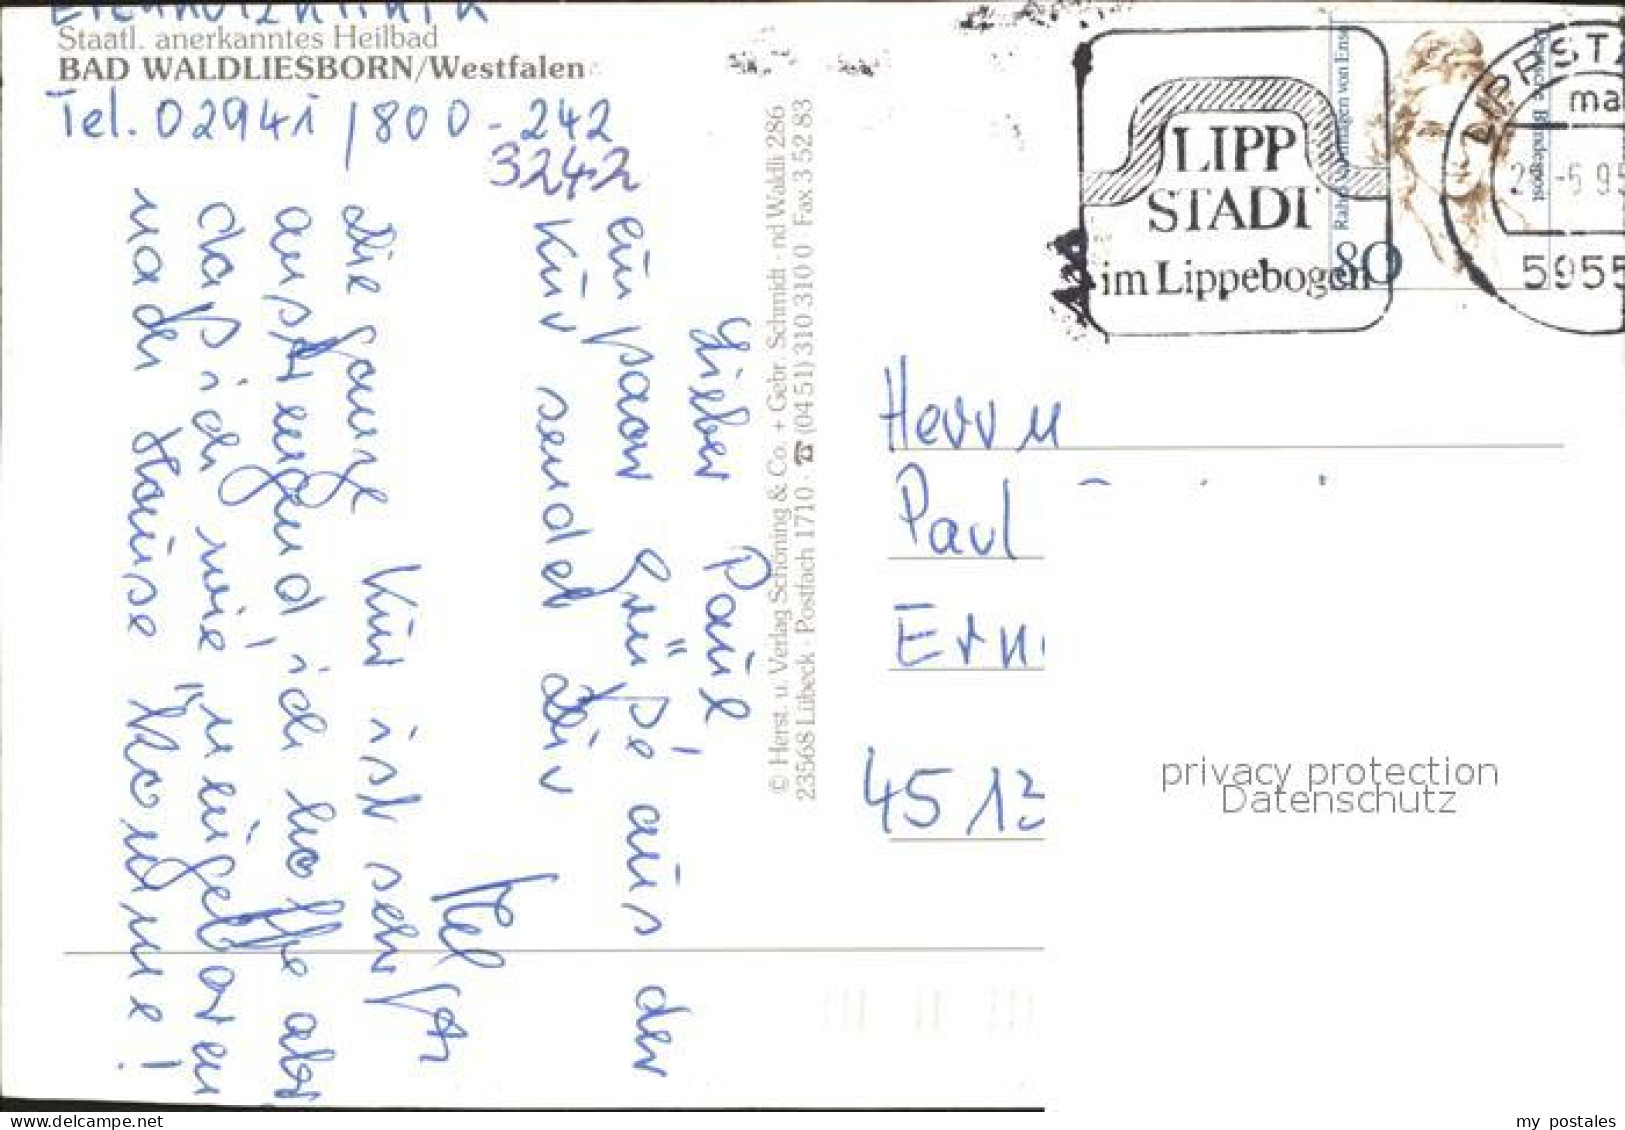 Eichholzklinik
Staatl. anerkanntes Heilbad
BAD WALDLIESBORN/Westfalen
Tel. 02941/800-242
3242
Lieber Paul
ein paar Grüße aus der
Kur sendet Dir
Die ganze Kur ist sehr
anstrengend ich hoffe aber
daß ich wie "neugeboren
nach Hause komme!
© Herst. u. Verlag Schöning & Co. + Gebr. Schmidt · nd Waldli 286
23568 Lübeck · Postfach 1710 · ☎ (04 51) 310 310 0 Fax 3 52 83
LIPP
STADT
im Lippebogen
Deutsche Bundespost
80
LIPPSTA
-6 95
5955
Herrn
Paul
45 13
privacy protection
Datenschutz
my postales